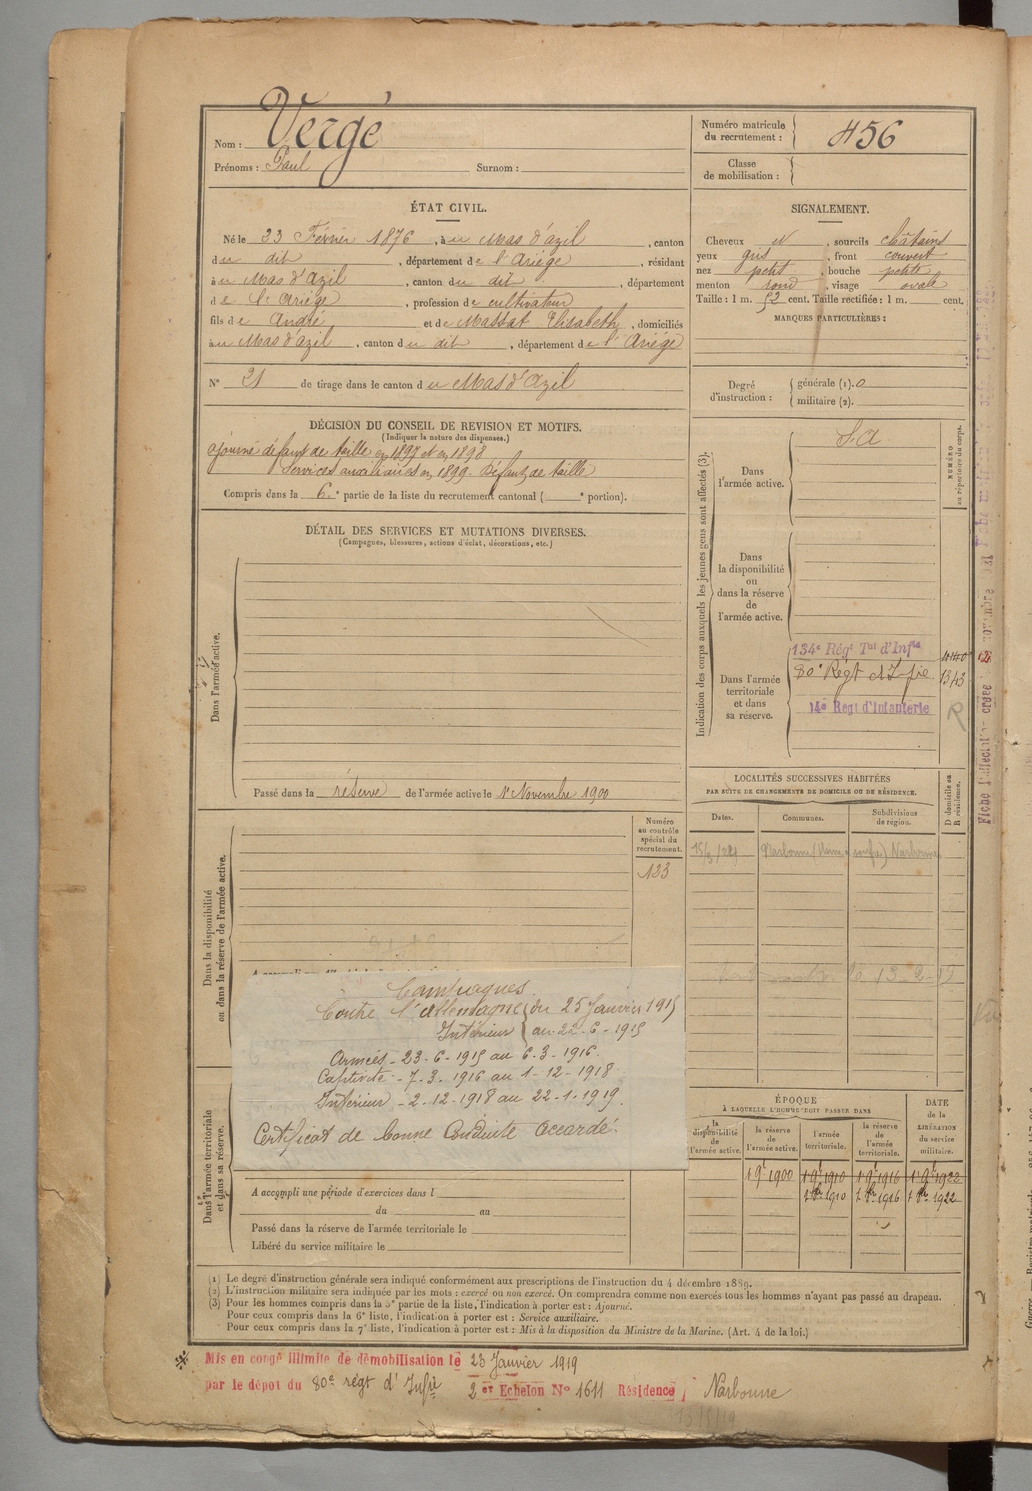 Nom : Vergé
Prénoms : Paul Surnom :
Numéro matricule du recrutement : 456
Classe de mobilisation :
ÉTAT CIVIL.
Né le 23 Février 1876, à u Mas d'azil, canton
d u dit, département d e l'Ariège, résidant
à u Mas d'Azil, canton d u dit, département
d e l'Ariège, profession d e cultivateur
fils d e André et d e Massat Elisabeth, domiciliés
à u Mas d'azil, canton d u dit, département d e l'Ariége
N° 21 de tirage dans le canton d u Mas d'Azil
SIGNALEMENT.
Cheveux N, sourcils châtains
yeux gris, front couvert
nez petit, bouche petite
menton rond, visage ovale
Taille : 1 m. 52 cent. Taille rectifiée : 1 m. cent.
MARQUES PARTICULIÈRES :
Degré d'instruction : générale (1). 0
militaire (2).
DÉCISION DU CONSEIL DE REVISION ET MOTIFS.
(Indiquer la nature des dispenses.)
ajourné défaut de taille en 1897 et en 1898
Services auxiliaires en 1899. Défaut de taille
Compris dans la 6.e partie de la liste du recrutement cantonal ( e portion).
DÉTAIL DES SERVICES ET MUTATIONS DIVERSES.
(Campagnes, blessures, actions d'éclat, décorations, etc.)
Dans l'armée active.
Passé dans la réserve de l'armée active le 1er Novembre 1900
Indication des corps auxquels les jeunes gens sont affectés (3).
NUMÉRO au répertoire du corps.
Dans l'armée active.
S.A
Dans la disponibilité ou dans la réserve de l'armée active.
Dans l'armée territoriale et dans sa réserve.
134e Régt Tal d'Infie
80e Régt d'Infie 1343
14e Régt d'Infanterie R
LOCALITÉS SUCCESSIVES HABITÉES
PAR SUITE DE CHANGEMENTS DE DOMICILE OU DE RÉSIDENCE.
Dates. Communes. Subdivisions de région. D domicile ou R résidence.
Narbonne Narbonne
Dans la disponibilité ou dans la réserve de l'armée active.
Numéro au contrôle spécial du recrutement.
123
Campagnes
Contre l'Allemagne (du 25 Janvier 1915
Intérieur au 22-6-1915
Armées - 23-6-1915 au 6-3-1916.
Captivité - 7-3-1916 au 1-12-1918
Intérieur - 2-12-1918 au 22-1-1919.
Certificat de bonne Conduite accordé.
Dans l'armée territoriale et dans sa réserve.
A accompli une période d'exercices dans l
du au
Passé dans la réserve de l'armée territoriale le
Libéré du service militaire le
ÉPOQUE
À LAQUELLE L'HOMME DOIT PASSER DANS
la disponibilité de l'armée active.
la réserve de l'armée active.
l'armée territoriale.
la réserve de l'armée territoriale.
DATE de la LIBÉRATION du service militaire.
1 9e 1900 1 9e 1910 1 9e 1916 1 9e 1922
1 1910 1 1916 1 1922
(1) Le degré d'instruction générale sera indiqué conformément aux prescriptions de l'instruction du 4 décembre 1889.
(2) L'instruction militaire sera indiquée par les mots : exercé ou non exercé. On comprendra comme non exercés tous les hommes n'ayant pas passé au drapeau.
(3) Pour les hommes compris dans la 5e partie de la liste, l'indication à porter est : Ajourné.
Pour ceux compris dans la 6e liste, l'indication à porter est : Service auxiliaire.
Pour ceux compris dans la 7e liste, l'indication à porter est : Mis à la disposition du Ministre de la Marine. (Art. 4 de la loi.)
Mis en congé illimité de démobilisation le 23 Janvier 1919
par le dépot du 80e régt d'Infie 2er Echelon N° 1611 Résidence Narbonne